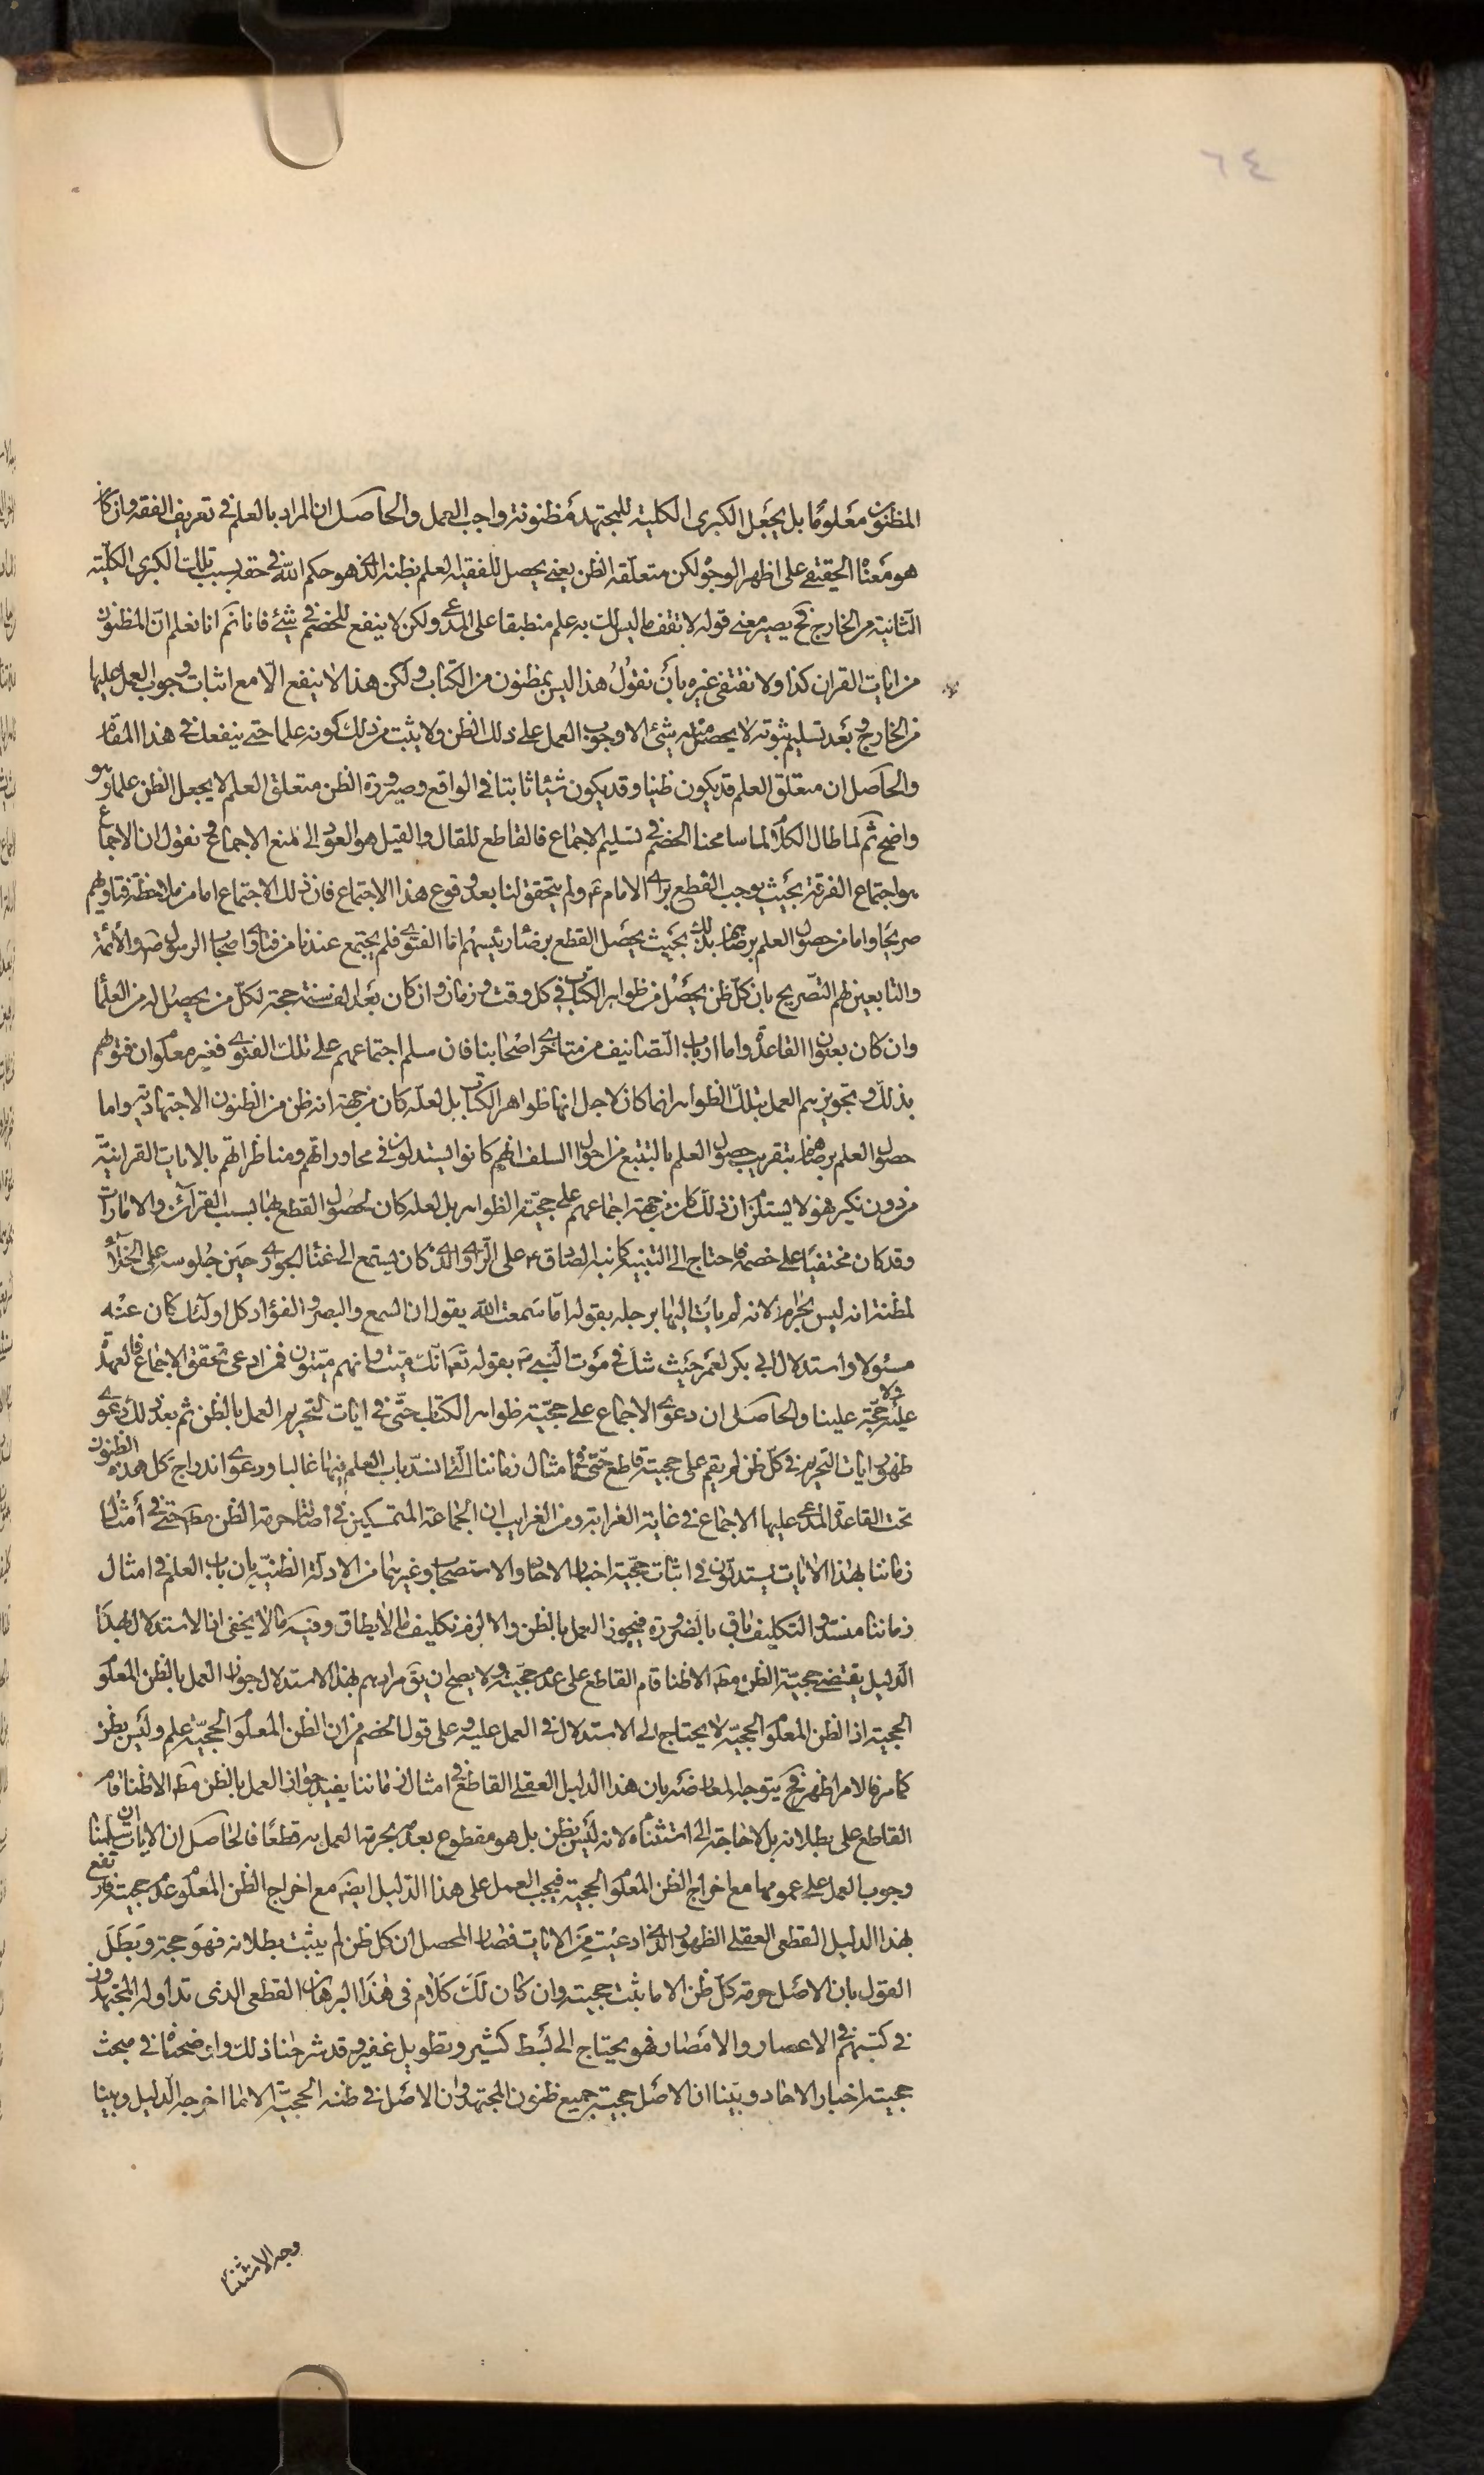 ٦٤
المظنون معلوما بل يجعل الكبرى الكلية للمجتهد مظنونة واجب العمل والحاصل ان المراد بالعلم في تعريف الفقه وان كان
هو معناه الحقيقي على اظهر الوجوه لكن متعلقه الظن يعني يحصل للفقيه العلم بظنه الذي هو حكم الله في حقه بسبب تلك الكبرى الكلية
الثانية من الخارج فح يصير معنى قوله لا تقف ما ليس لك به علم منطبقا على المدعى ولكن لا ينفع للخصم في شيء فانا نعلم ان المظنون
من ايات القران كذا ولا نقتفي غيره بان نقول هذا ليس بمظنون من الكتاب ولكن هذا لا ينفع الا مع اثبات وجوب العمل عليها
من الخارج وبعد تسليم ثبوته لا يحصل منه شيئ الا وجوب العمل على ذلك الظن ولا يثبت من ذلك كونه علما حتى ينفعك في هذا المقام
والحاصل ان متعلق العلم قد يكون ظنيا وقد يكون شيئا ثابتا في الواقع وصيرورة الظن متعلق العلم لا يجعل الظن علما وهو
واضح ثم لما طال الكلام لما سامحنا الخصم في تسليم الاجماع فالقاطع للقال والقيل هو العود الى منع الاجماع ونقول ان الاجماع
هو اجتماع الفرقة بحيث يوجب القطع براى الامام ع ولم يتحقق لنا بعد وقوع هذا الاجتماع فان ذلك الاجتماع اما من ملاحظة فتاويهم
صريحا واما من حصول العلم برضاهم بذلك بحيث يحصل القطع برضاء رئيسهم اما الفتوى فلم يجتمع عندنا من فتاوى اصحاب الرسول ص والائمة
والتابعين لهم التصريح بان كل ظن يحصل من ظواهر الكتاب في كل وقت وزمان وان كان بعد الف سنة حجة لكل من يحصل له من العلما
وان كان بعنوان القاعدة واما ارباب التصانيف من متاخري اصحابنا فان سلم اجتماعهم على تلك الفتوى فغير معلوم ان فتويهم
بذلك وتجويزهم العمل بتلك الظواهر انما كان لاجل انها ظواهر الكتاب بل لعله كان من جهة انه ظن من الظنون الاجتهادية واما
حصول العلم برضاهم بتقريب حصول العلم بالتتبع من احوال السلف انهم كانوا يستدلون في محاوراتهم ومناظراتهم بالايات القرانية
من دون نكير فهو لا يستلزم ان ذلك كان من جهة اجماعهم على حجية الظواهر بل لعله كان لحصول القطع بها بسبب القرائن والامارات
وقد كان مختفيا على خصمه فاحتاج الى التنبيه كما نبه الصادق ع على الراوي الذي كان يستمع الى غناء الجواري حين جلوسه على الخلاء
لمظنة انه ليس بحرام لانه لم يات اليها برجله بقوله اما سمعت الله يقول ان السمع والبصر والفؤاد كل اولئك كان عنه
مسئولا واستدلال ابي بكر لعمر حيث شك في موت النبي ص بقوله تعم انك ميت وانهم ميتون فمن ادعى تحقق الاجماع فالعهدة
عليه ولا حجة علينا والحاصل ان دعوى الاجماع على حجية ظواهر الكتاب حتى في ايات التحريم العمل بالظن ثم بعد ذلك دعوى
ظهور ايات التحريم في كل ظن لم يقم على حجيته قاطع حتى في امثال زماننا التي انسد باب العلم فيها غالبا ودعوى اندراج كل هذه الظنون
تحت القاعدة المدعى عليها الاجماع في غاية الغرابة ومن الغرايب ان الجماعة المتمسكين في اصالة حرمة الظن مطه حتى في امثال
زماننا بهذا الايات يستدلون في اثبات حجية اخبار الاحاد والاستصحاب وغيرهما من الادلة الظنية بان باب العلم في امثال
زماننا منسد والتكليف باق بالضرورة فيجوز العمل بالظن والا لزم تكليف ما لا يطاق وفيه ما لا يخفى اذ الاستدلال بهذا
الدليل يقتضي حجية الظن مطه الا ظنا قام القاطع على عدم حجيته ولا يصح ان يق مرادهم بهذا الاستدلال جواز العمل بالظن المعلوم
الحجية اذ الظن المعلوم الحجية لا يحتاج الى الاستدلال في العمل عليه وعلى قول الخصم من ان الظن المعلوم الحجية علم وليس بظن
كما مر فالامر اظهر فح يتوجه المعارضه بان هذا الدليل العقلي القاطع في امثال زماننا يفيد جواز العمل بالظن مطه الا ظنا قام
القاطع على بطلانه بل لا حاجة الى استثنائه لانه ليس بظن بل هو مقطوع بعدمه بحرمة العمل به قطعا فالحاصل ان الايات ان سلمنا
وجوب العمل على عمومها مع اخراج الظن المعلوم الحجية فيجب العمل على هذا الدليل ايضه مع اخراج الظن المعلوم عدم حجيته فارتفع
بهذا الدليل القطعي العقلي الظهور الذي ادعيت من الايات فصار المحصل ان كل ظن لم يثبت بطلانه فهو حجة وبطل
القول بان الاصل حرمة كل ظن الا ما ثبت حجيته وان كان لك كلام في هذا البرهان القطعي الذي تداوله المجتهدون
في كتبهم في الاعصار والامصار فهو يحتاج الى بسط كثير وتطويل غفير وقد شرحنا ذلك واوضحناه في مبحث
حجية اخبار الاحاد وبينا ان الاصل حجية جميع ظنون المجتهد وان الاصل في ظنه الحجية الا ما اخرجه الدليل وبينا
وجه الاستثناء